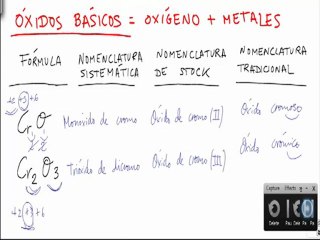 ÓXIDOS BÁSICOS = OXÍGENO + METALES
FÓRMULA NOMENCLATURA SISTEMÁTICA NOMENCLATURA DE STOCK NOMENCLATURA TRADICIONAL
+2 +3 +6
CrO Monóxido de cromo Óxido de cromo (II) Óxido cromoso
Cr2O3 Trióxido de dicromo Óxido de cromo (III) Óxido crómico
+2 +3 +6
Capture Effects
Delete Pau Dele Pa